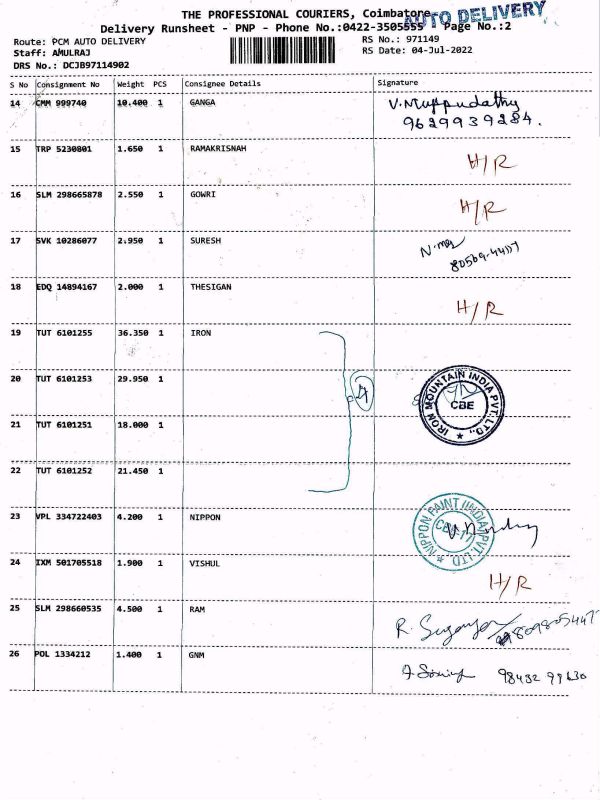 THE PROFESSIONAL COURIERS, Coimbatore
AUTO DELIVERY
Delivery Runsheet - PNP - Phone No.:0422-3505555 Page No.:2
Route: PCM AUTO DELIVERY
RS No.: 971149
Staff: AMULRAJ
RS Date: 04-Jul-2022
DRS No.: DCJB97114902
S No Consignment No Weight PCS Consignee Details Signature
14 CMM 999740 10.400 1 GANGA
9629939284.
15 TRP 5230801 1.650 1 RAMAKRISNAH H/R
16 SLM 298665878 2.550 1 GOWRI H/R
17 SVK 10286077 2.950 1 SURESH
18 EDQ 14894167 2.000 1 THESIGAN H/R
19 TUT 6101255 36.350 1 IRON
20 TUT 6101253 29.950 1
4
IRON MOUNTAIN INDIA PVT. LTD.,
CBE
21 TUT 6101251 18.000 1
22 TUT 6101252 21.450 1
23 VPL 334722403 4.200 1 NIPPON
NIPPON PAINT (INDIA) PVT. LTD
24 IXM 501705518 1.900 1 VISHUL H/R
25 SLM 298660535 4.500 1 RAM
26 POL 1334212 1.400 1 GNM
98432 99630